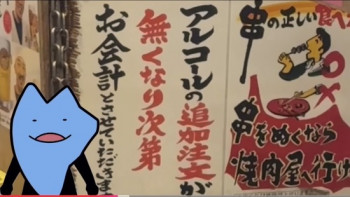 アルコールの追加注文が
無くなり次第
お会計とさせていただきます
串の正しい食べ方
串をぬくなら
焼肉屋へ行け